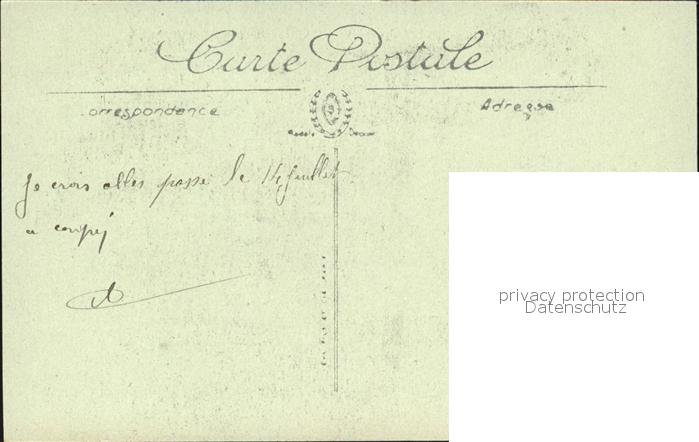 Carte Postale
Correspondance
Adresse
Je crois aller passé le 14 Juillet
a
privacy protection
Datenschutz